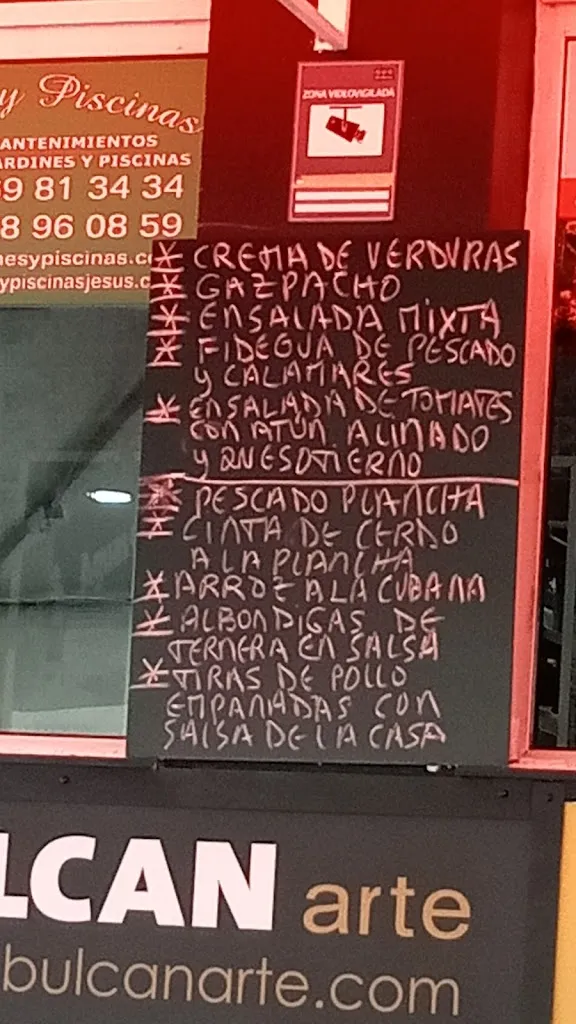 y Piscinas
ANTENIMIENTOS
ARDINES Y PISCINAS
69 81 34 34
8 96 08 59
nesypiscinas.co
ypiscinasjesus.c
ZONA VIDEOVIGILADA
* CREMA DE VERDURAS
* GAZPACHO
* ENSALADA MIXTA
* FIDEGUA DE PESCADO
y CALAMARES
* ENSALADA DE TOMATES
CON ATÚN ALINADO
y QUESOTIERNO
* PESCADO PLANCHA
* CINTA DE CERDO
A LA PLANCHA
* ARROZ A LA CUBANA
* ALBONDIGAS DE
TERNERA EN SALSA
* TIRAS DE POLLO
EMPANADAS CON
SALSA DE LA CASA
LCAN arte
bulcanarte.com